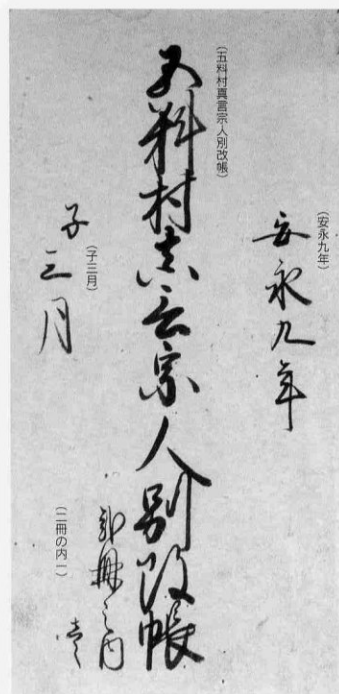 (安永九年)
安永九年
(五料村真言宗人別改帳)
五料村真言宗人別改帳
(子三月)
子三月
弐冊之内
壱
(二冊の内一)